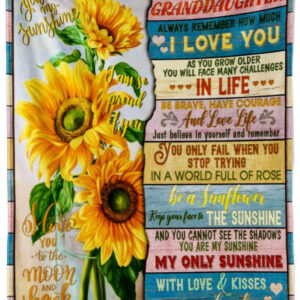 You
are my
Sunshine
I am so
proud
of you
I love
you
to the
moon
and
back
GRANDDAUGHTER
ALWAYS REMEMBER HOW MUCH
I LOVE YOU
AS YOU GROW OLDER
YOU WILL FACE MANY CHALLENGES
IN LIFE
BE BRAVE, HAVE COURAGE
And Love Life
Just believe in yourself and remember
YOU ONLY FAIL WHEN YOU
STOP TRYING
IN A WORLD FULL OF ROSE
be a Sunflower
Keep your face to THE SUNSHINE
AND YOU CANNOT SEE THE SHADOWS
YOU ARE MY SUNSHINE
MY ONLY SUNSHINE
WITH LOVE & KISSES